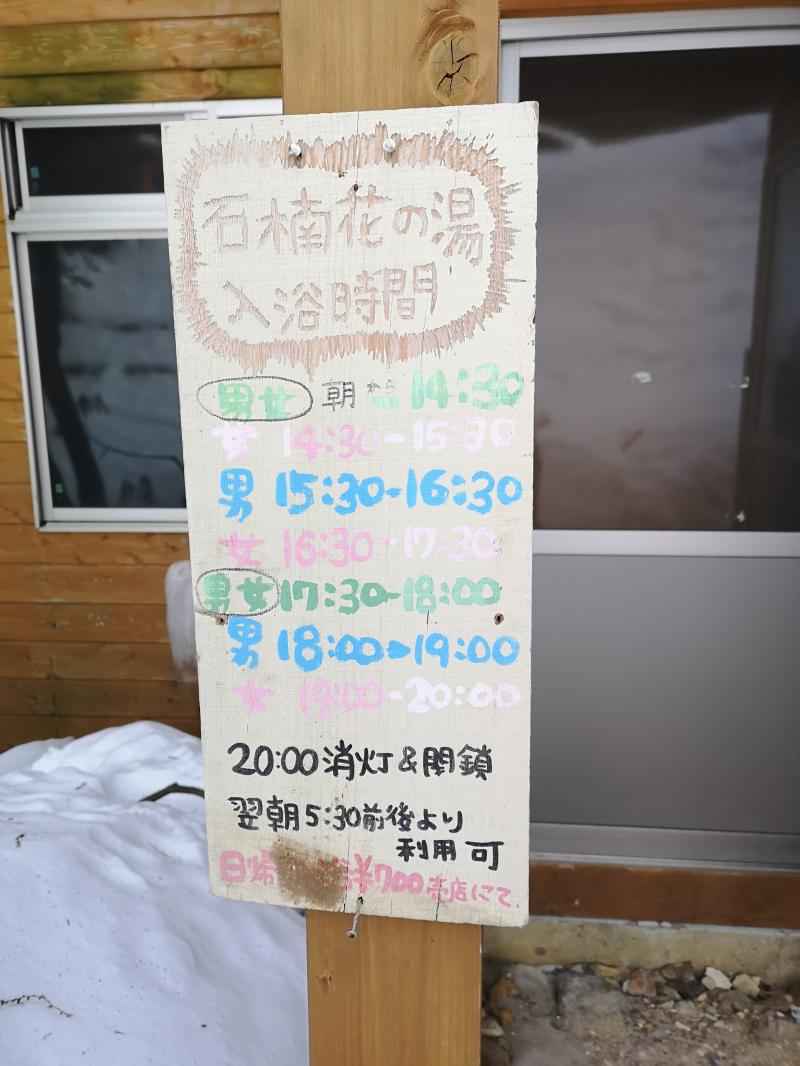 石楠花の湯
入浴時間
男女 朝 14:30
女 14:30-15:30
男 15:30-16:30
女 16:30-17:30
男女 17:30-18:00
男 18:00-19:00
女 19:00-20:00
20:00消灯&閉鎖
翌朝5:30前後より
利用可
日帰 ¥700売店にて